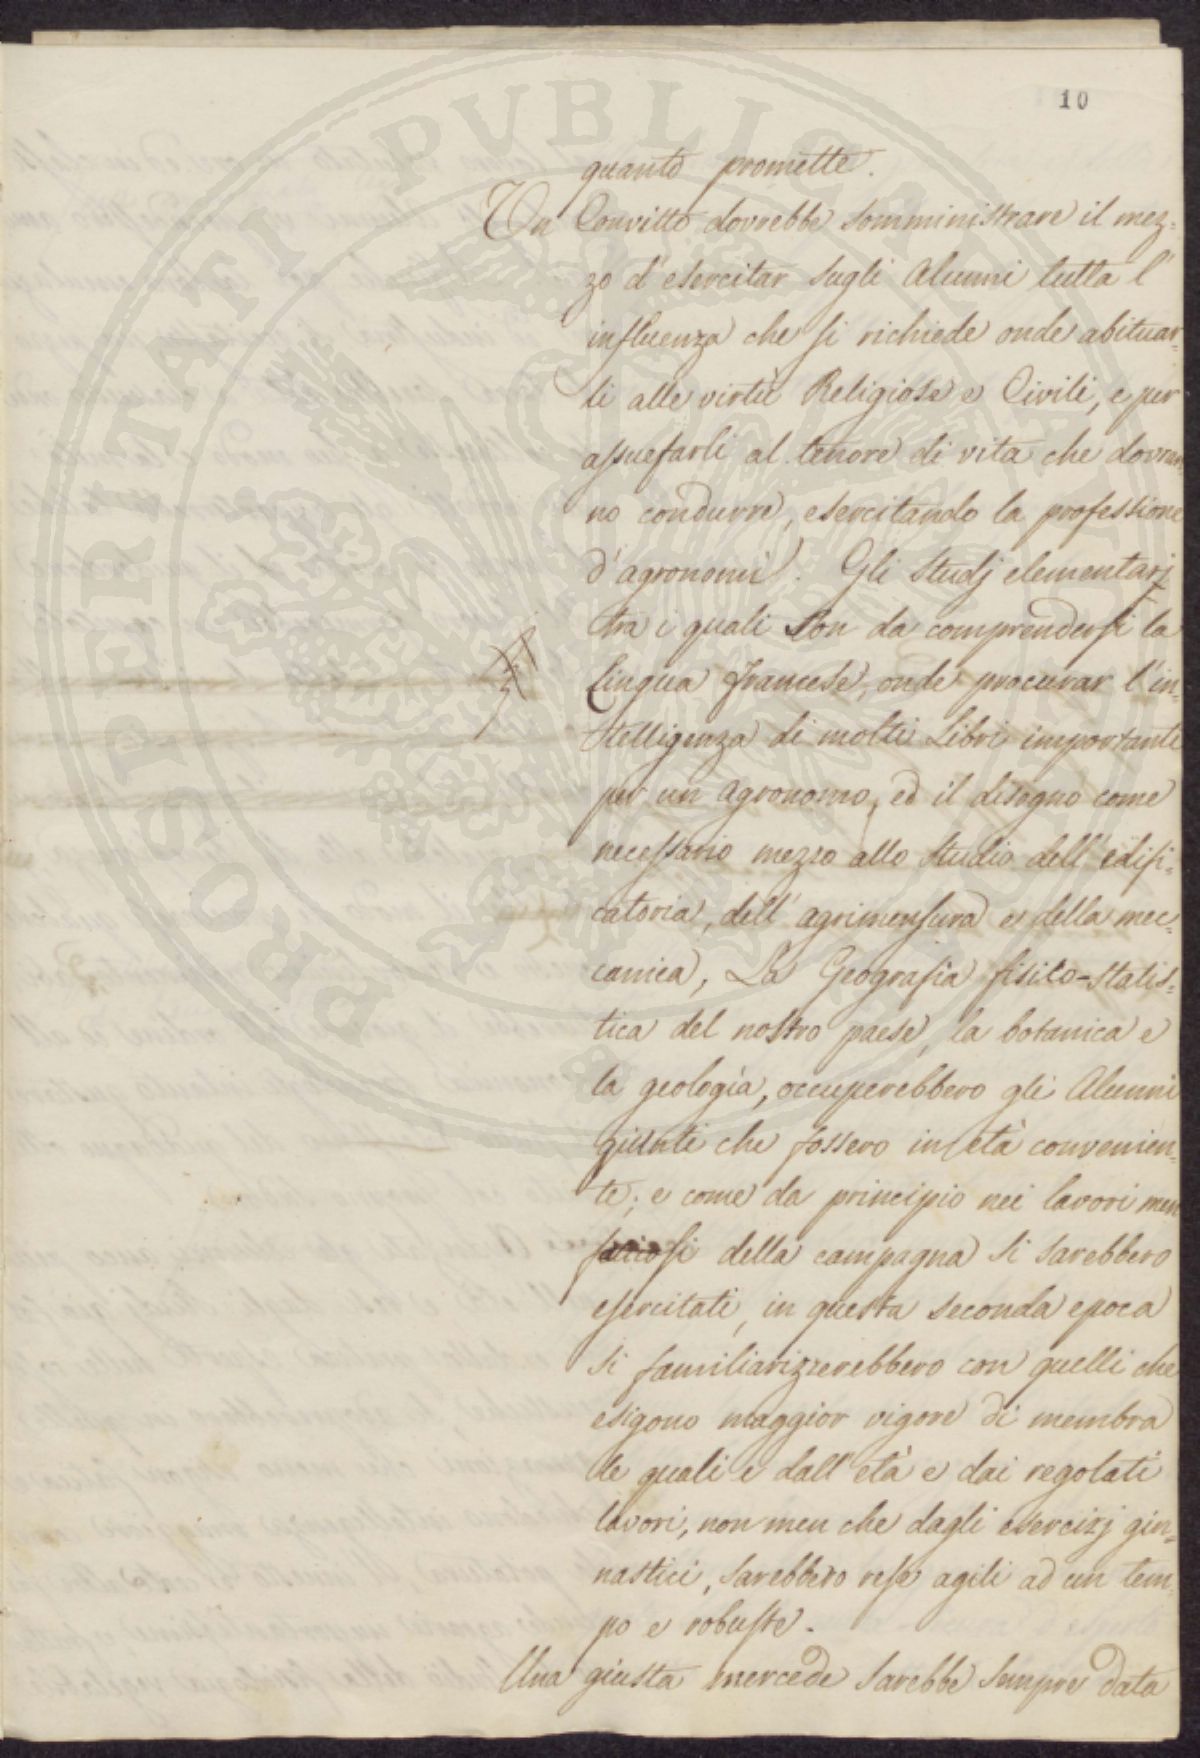 10
quanto promette.
Un Convitto dovrebbe somministrare il mez-
zo d'esercitar sugli Alunni tutta l'
influenza che si richiede onde abituar-
li alle virtù Religiose e Civili, e per
assuefarli al tenore di vita che dovran
no condurre, esercitando la professione
d'agronomi. Gli studj elementarj
tra i quali son da comprendersi la
lingua francese, onde procurar l'in-
telligenza di molti Libri importanti
per un agronomo, ed il disegno come
necessario mezzo allo studio dell'edifi-
catoria, dell'agrimensura e della mec-
canica, La Geografia fisico-statis-
tica del nostro paese, la botanica e
la geologia, occuperebbero gli Alunni
giunti che fossero in età convenien-
te; e come da principio nei lavori men
faticosi della campagna si sarebbero
esercitati, in questa seconda epoca
si familiarizzerebbero con quelli che
esigono maggior vigore di membra
le quali e dall'età e dai regolati
lavori, non men che dagli esercizj gin-
nastici, sarebbero rese agili ad un tem-
po e robuste.
Una giusta mercede sarebbe sempre data
PROSPERITATI PUBLICAE